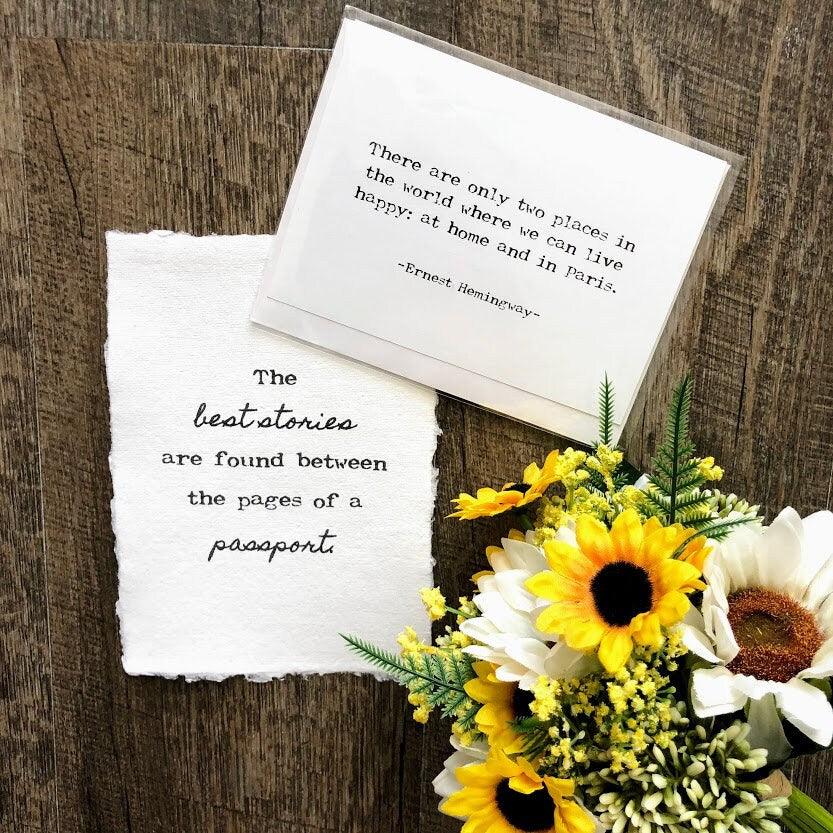 There are only two places in
the world where we can live
happy: at home and in Paris.
-Ernest Hemingway-
The
best stories
are found between
the pages of a
passport.